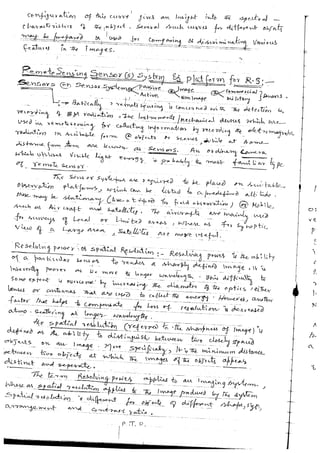 Configuration of this curve gives an insight into the spectral
characteristics of the object. Several such curves for different objects
may be prepared & used for comparing & discriminating various
features in the Images.
Remote Sensing Sensor(s) System & platform for R.S:-
Sensors @ Sensor Systems Passive Image Commercial
Active non Image Military
Basically, remote sensing is concerned with the detection &
recording of EM radiation. The Instruments/mechanical devices which are
used in remote sensing for collecting information by recording electromagnetic
radiation in suitable form @ objects or scenes, while at some
distance from them are known as Sensors. An ordinary camera
which utilises visible light energy is probably the most familiar type
of remote sensor.
The Sensor Systems are required to be placed on suitable
observation platforms, which can be lifted to a predefined altitude.
These may be stationary (for field observation) @ Mobile,
such as Air craft and Satellites. The aircrafts are mainly used
for surveys of Local or limited areas, where as for synoptic
view of a large area, satellites are more useful.
Resolving power or Spatial Resolution:- Resolving power is the ability
of a particular sensor to render a sharply defined image, it is
inversely poorer as we move to longer wavelength. This difficulty to
some extent is removed by increasing the diameter of the optics either
lenses or antennas that are used to collect the energy. However, another
factor that helps to compensate for loss of resolution is decreased
atmo. Scattering at longer wavelengths.
The spatial resolution (referred to the sharpness of Image) is
defined as the ability to distinguish between two closely spaced
objects on an Image. More specifically, it's the minimum distance
between two objects at which the images of the objects appear
distinct and separate.
The term Resolving power applies to an imaging system,
where as spatial resolution applies to the Image produced by the system
Spatial resolution is different for objects of different shape, size,
arrangement and contrast ratio.
P.T.O.